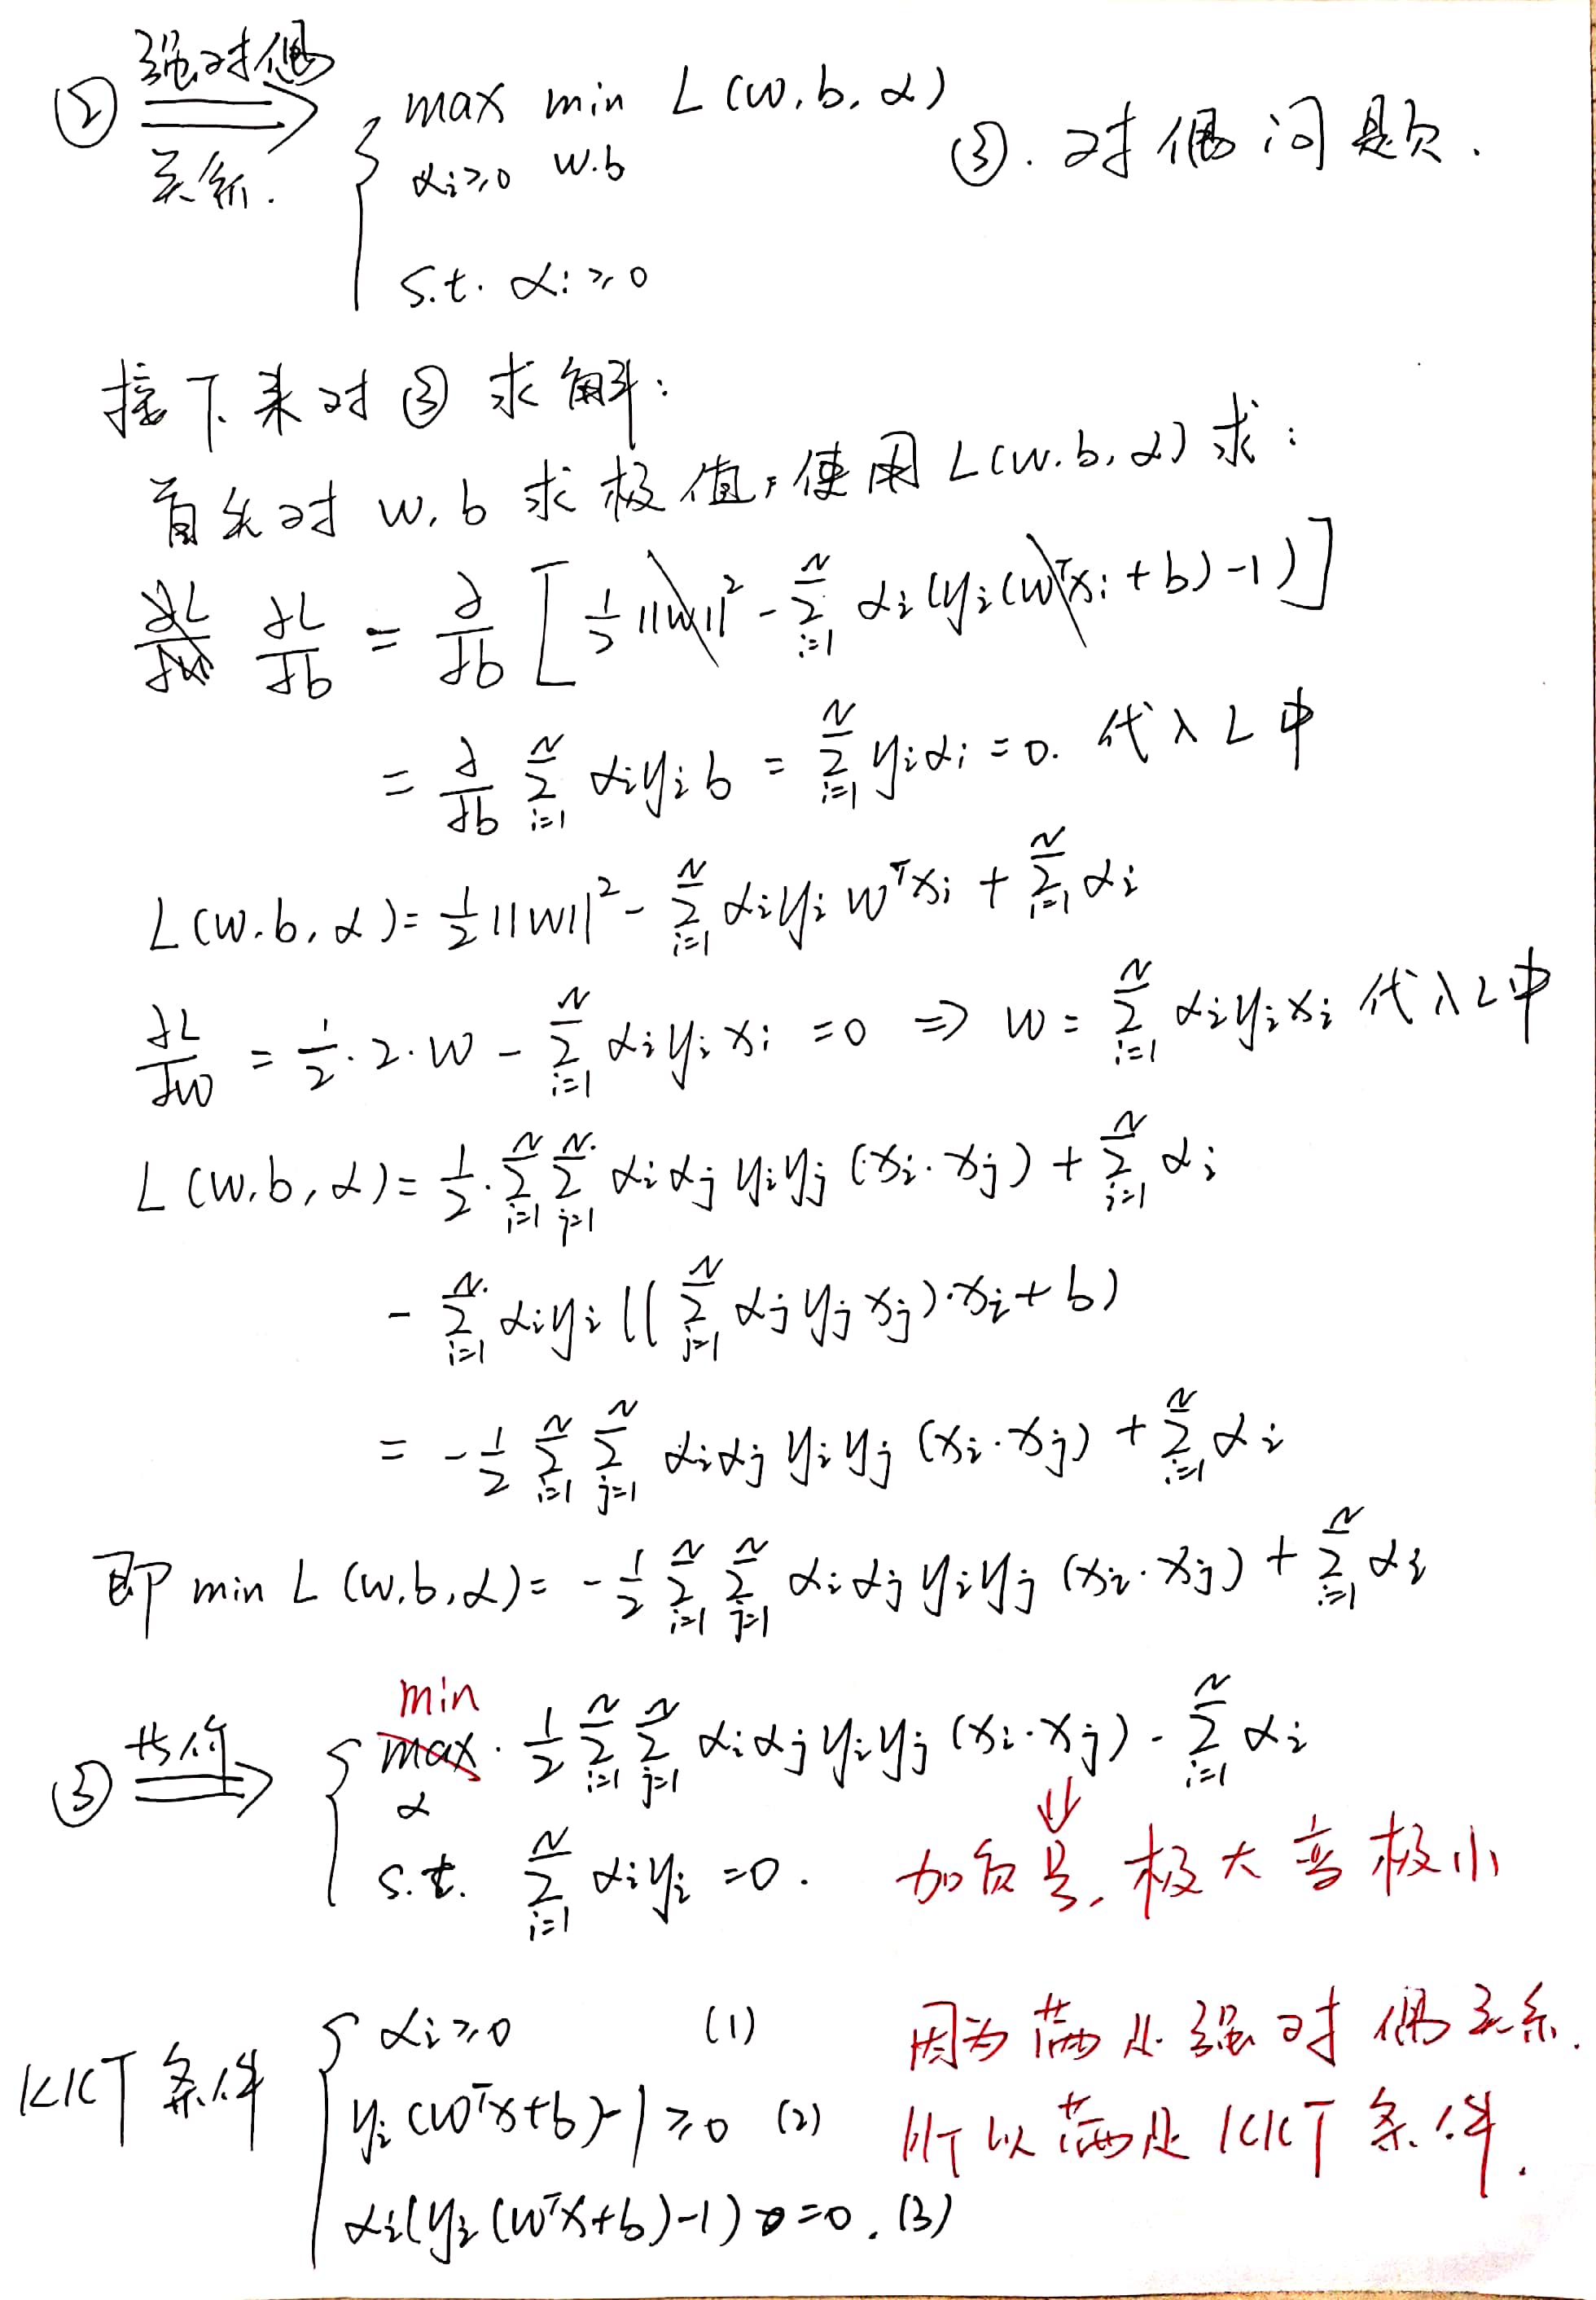 ② 强对偶关系. ⟹ { max_{αi≥0} min_{w.b} L(w.b.α) ③. 对偶问题.
s.t. αi≥0
接下来对③求解:
首先对 w, b 求极值, 使用 L(w.b,α) 求:
∂L/∂b = ∂/∂b [ 1/2 ||w||² - Σ_{i=1}^N αi(yi(wᵀxi+b)-1) ]
= ∂/∂b Σ_{i=1}^N αi yi b = Σ_{i=1}^N yi αi = 0. 代入L中
L(w.b,α) = 1/2 ||w||² - Σ_{i=1}^N αi yi wᵀxi + Σ_{i=1}^N αi
∂L/∂w = 1/2·2·w - Σ_{i=1}^N αi yi xi = 0 ⇒ w = Σ_{i=1}^N αi yi xi 代入L中
L(w.b,α) = 1/2·Σ_{i=1}^N Σ_{j=1}^N αi αj yi yj (xi·xj) + Σ_{i=1}^N αi
- Σ_{i=1}^N αi yi ((Σ_{j=1}^N αj yj xj)·xi + b)
= -1/2 Σ_{i=1}^N Σ_{j=1}^N αi αj yi yj (xi·xj) + Σ_{i=1}^N αi
即 min L(w.b,α) = -1/2 Σ_{i=1}^N Σ_{j=1}^N αi αj yi yj (xi·xj) + Σ_{i=1}^N αi
min
③ ⟹ { max_α · 1/2 Σ_{i=1}^N Σ_{j=1}^N αi αj yi yj (xi·xj) - Σ_{i=1}^N αi
⇓
s.t. Σ_{i=1}^N αi yi = 0. 加负号, 极大变极小
KKT 条件 { αi≥0 (1) 因为满足强对偶关系.
yi(wᵀx+b)-1≥0 (2) 所以满足KKT条件.
αi(yi(wᵀx+b)-1)=0. (3)